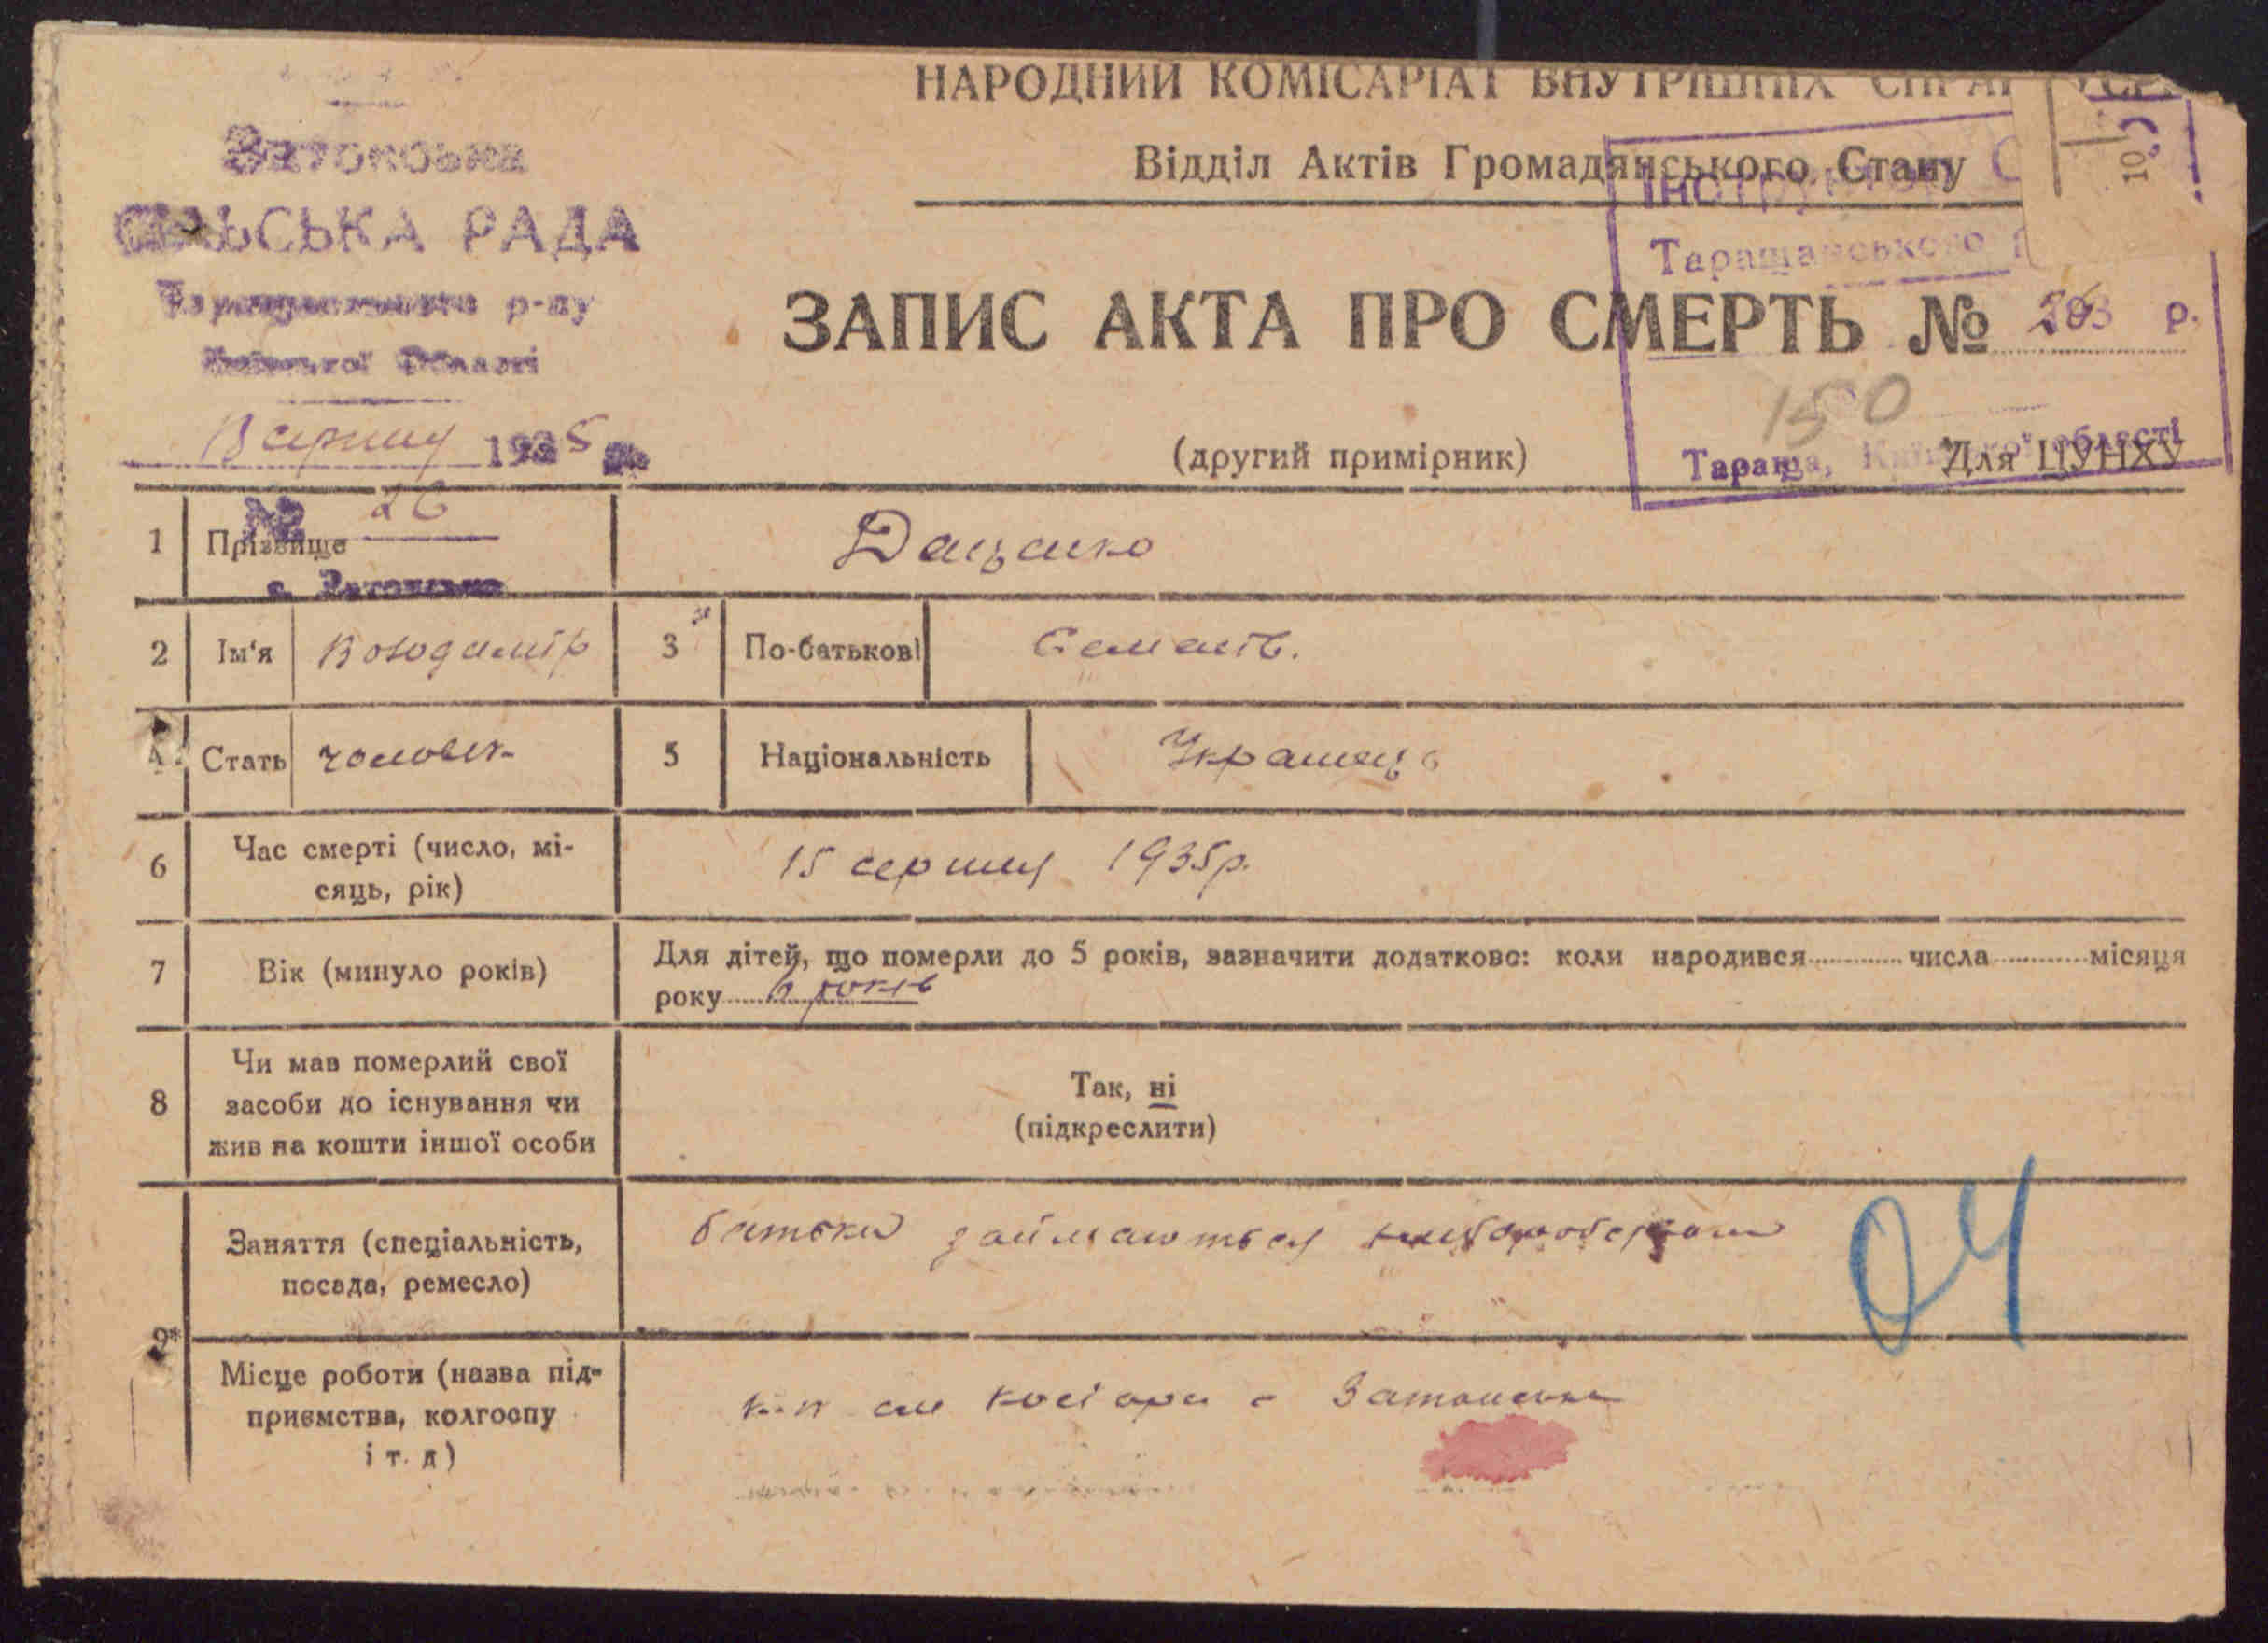 НАРОДНИЙ КОМІСАРІАТ ВНУТРІШНІХ СПРАВ УСРР
Відділ Актів Громадянського Стану
СІЛЬСЬКА РАДА
р-ну
Київської Області
серпня 1935
№ 26
Таращанського
Тараща, Київської області
ЗАПИС АКТА ПРО СМЕРТЬ №
150
(другий примірник)
Для ЦУНХУ
1 Прізвище Даценко
2 Ім'я Володимір 3 По-батькові Семенів.
4 Стать чоловік 5 Національність Українець
6 Час смерті (число, мі-
сяць, рік) 15 серпня 1935р.
7 Вік (минуло років) Для дітей, що померли до 5 років, зазначити додатково: коли народився числа місяця
року років
8 Чи мав померлий свої
засоби до існування чи
жив на кошти іншої особи
Так, ні
(підкреслити)
9*
Заняття (спеціальність,
посада, ремесло)
батьки займаються хліборобством
Місце роботи (назва під-
приємства, колгоспу
і т. д)
04